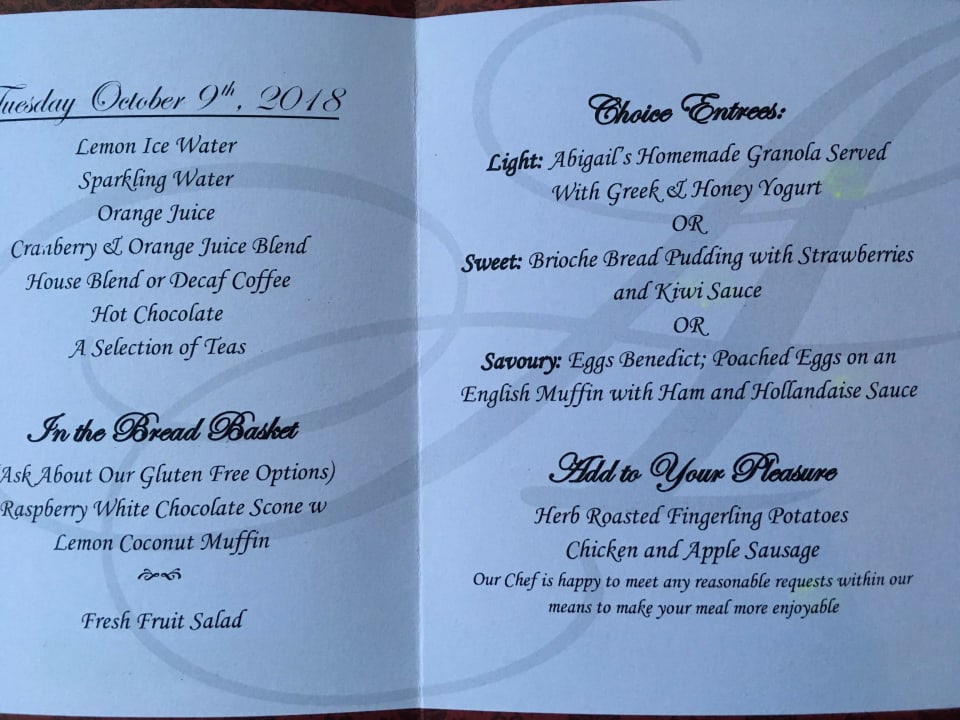 Tuesday October 9th, 2018
Lemon Ice Water
Sparkling Water
Orange Juice
Cranberry & Orange Juice Blend
House Blend or Decaf Coffee
Hot Chocolate
A Selection of Teas
In the Bread Basket
(Ask About Our Gluten Free Options)
Raspberry White Chocolate Scone w
Lemon Coconut Muffin
Fresh Fruit Salad
Choice Entrees:
Light: Abigail's Homemade Granola Served
With Greek & Honey Yogurt
OR
Sweet: Brioche Bread Pudding with Strawberries
and Kiwi Sauce
OR
Savoury: Eggs Benedict; Poached Eggs on an
English Muffin with Ham and Hollandaise Sauce
Add to Your Pleasure
Herb Roasted Fingerling Potatoes
Chicken and Apple Sausage
Our Chef is happy to meet any reasonable requests within our
means to make your meal more enjoyable